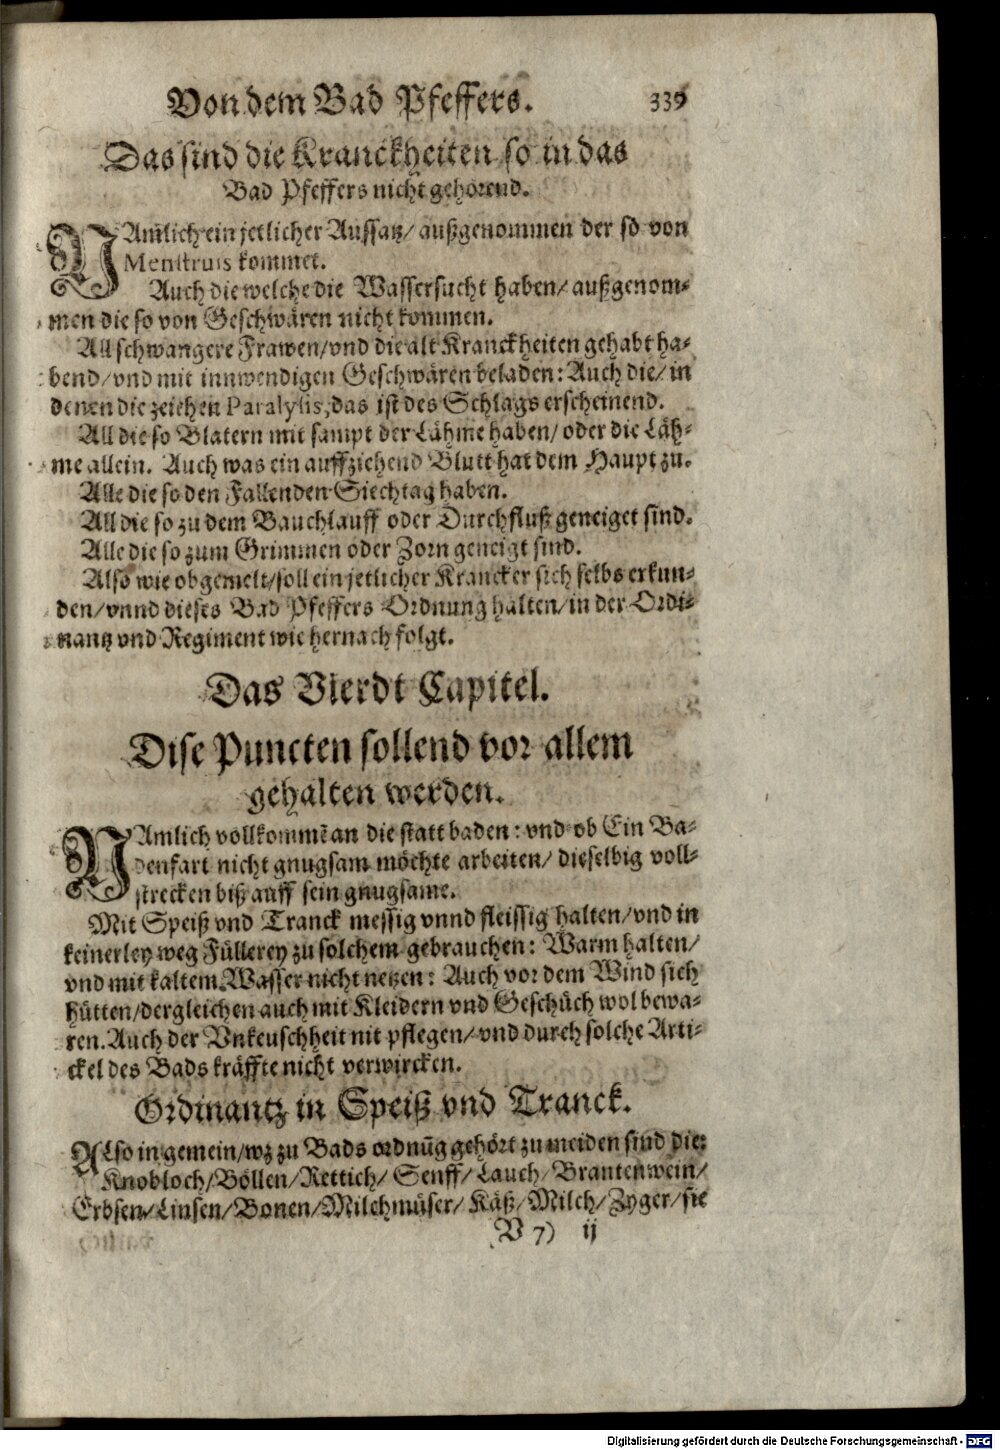 Von dem Bad Pfeffers. 339
Das sind die Kranckheiten so in das
Bad Pfeffers nicht gehörend.
NAmlich ein jetlicher Aussatz/ außgenommen der so von
Menstruis kommet.
Auch die welche die Wassersucht haben/ außgenom-
men die so von Geschwären nicht kommen.
All schwangere Frawen/ vnd die alt Kranckheiten gehabt ha-
bend/ vnd mit innwendigen Geschwären beladen: Auch die/ in
denen die zeichen Paralysis, das ist des Schlags erscheinend.
All die so Blatern mit sampt der Lähme haben/ oder die Läh-
me allein. Auch was ein auffziehend Blutt hat dem Haupt zu.
Alle die so den Fallenden Siechtag haben.
All die so zu dem Bauchlauff oder Durchfluß geneiget sind.
Alle die so zum Grimmen oder Zorn geneigt sind.
Also wie obgemelt/ soll ein jetlicher Krancker sich selbs erkun-
den/ vnnd dieses Bad Pfeffers Ordnung halten/ in der Ordi-
nantz vnd Regiment wie hernach folgt.
Das Vierdt Capitel.
Dise Puncten sollend vor allem
gehalten werden.
NAmlich vollkommē an die statt baden: vnd ob Ein Ba-
denfart nicht gnugsam möchte arbeiten/ dieselbig voll-
strecken biß auff sein gnugsame.
Mit Speiß vnd Tranck messig vnnd fleissig halten/ vnd in
keinerley weg Füllerey zu solchem gebrauchen: Warm halten/
vnd mit kaltem Wasser nicht netzen: Auch vor dem Wind sich
hütten/ dergleichen auch mit Kleidern vnd Geschüch wol bewa-
ren. Auch der Vnkeuschheit nit pflegen/ vnd durch solche Arti-
ckel des Bads kräffte nicht verwircken.
Ordinantz in Speiß vnd Tranck.
ALso in gemein/ wz zu Bads ordnūg gehört zu meiden sind die:
Knobloch/ Böllen/ Rettich/ Senff/ Lauch/ Brantenwein/
Erbsen/ Linsen/ Bonen/ Milchmüser/ Käß/ Milch/ Zyger/ sie
V 7) ij
Digitalisierung gefördert durch die Deutsche Forschungsgemeinschaft - DFG